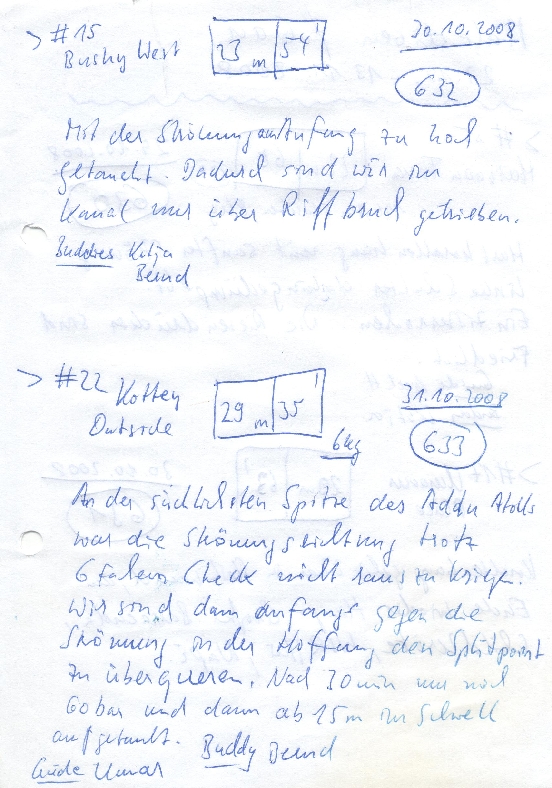 > #15
Bushy West
23 m 54'
30.10.2008
632
Mit der Strömung am Anfang zu hoch
getaucht. Dadurch sind wir im
Kanal nur über Riffbruch getrieben.
Buddies Katja
Bernd
> #22 Kottey
Outside
29 m 35'
6kg
31.10.2008
633
An der südlichsten Spitze des Addu Atolls
war die Strömungsrichtung trotz
6 fachem Check nicht raus zu kriegen.
Wir sind dann anfangs gegen die
Strömung in der Hoffnung den Splitpoint
zu überqueren. Nach 30min nur noch
60bar und dann ab 15m im Schwell
aufgetaucht. Buddy Bernd
Guide Umar